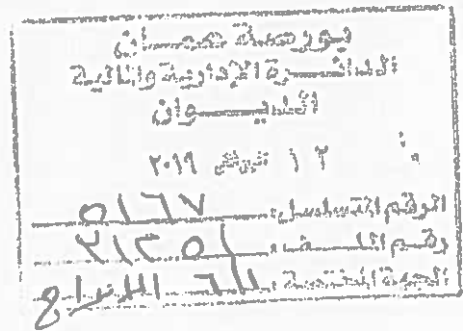 بورصة عمان
الدائرة الإدارية والمالية
الديوان
١٢ ٢٠١٩
الرقم المتسلسل: ٥١٦٧
رقم الملف: ٣١٢٥١
الجهة المختصة: